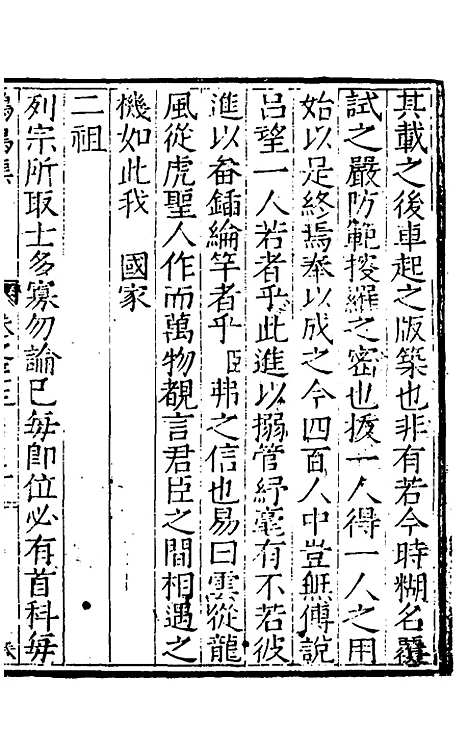 其載之後車起之版築也非有若今時糊名覆
試之嚴防範搜羅之密也拔一人得一人之用
始以是終焉奉以成之今四百人中豈無傅說
呂望一人若者乎此進以搦管紓毫有不若彼
進以畚鍤綸竿者乎臣弗之信也易曰雲從龍
風從虎聖人作而萬物覩言君臣之間相遇之
機如此我　國家
二祖
列宗所取士多寡勿論已每即位必有首科每